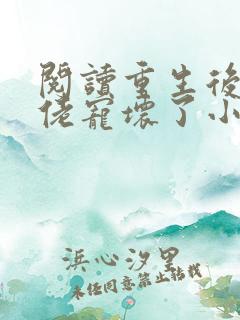 閱讀重生後
佬寵壞了小
浜心汐里
未經同意禁止轉載